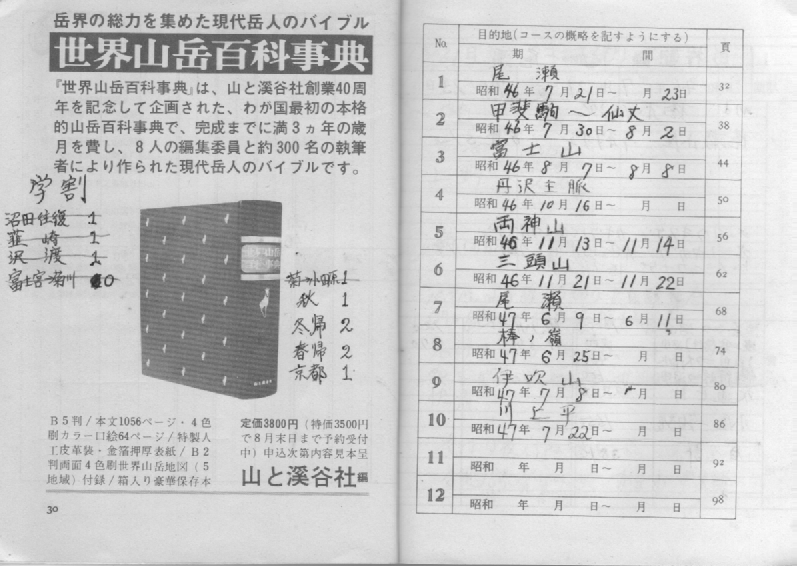 岳界の総力を集めた現代岳人のバイブル
世界山岳百科事典
『世界山岳百科事典』は、山と溪谷社創業40周
年を記念して企画された、わが国最初の本格
的山岳百科事典で、完成までに満3ヵ年の歳
月を費し、8人の編集委員と約300名の執筆
者により作られた現代岳人のバイブルです。
学割
沼田往復 1
韮崎 1
沢渡 1
富士宮 0
小田原 1
秋 1
冬帰 2
春帰 2
京都 1
B5判/本文1056ページ・4色
刷カラー口絵64ページ/特製人
工皮革装・金箔押厚表紙/B2
判両面4色刷世界山岳地図(5
地域)付録/箱入り豪華保存本
定価3800円(特価3500円
で8月末日まで予約受付
中)申込次第内容見本呈
山と溪谷社編
30
No. 目的地(コースの概略を記すようにする) 頁
期 間
1 尾瀬 32
昭和46年7月21日〜 月23日
2 甲斐駒〜仙丈 38
昭和46年7月30日〜8月2日
3 富士山 44
昭和46年8月7日〜8月8日
4 丹沢主脈 50
昭和46年10月16日〜 月 日
5 両神山 56
昭和46年11月13日〜11月14日
6 三頭山 62
昭和46年11月21日〜11月22日
7 尾瀬 68
昭和47年6月9日〜6月11日
8 棒ノ嶺 74
昭和47年6月25日〜 月 日
9 伊吹山 80
昭和47年7月8日〜 月 日
10 川上平 86
昭和47年7月22日〜 月 日
11 92
昭和 年 月 日〜 月 日
12 98
昭和 年 月 日〜 月 日